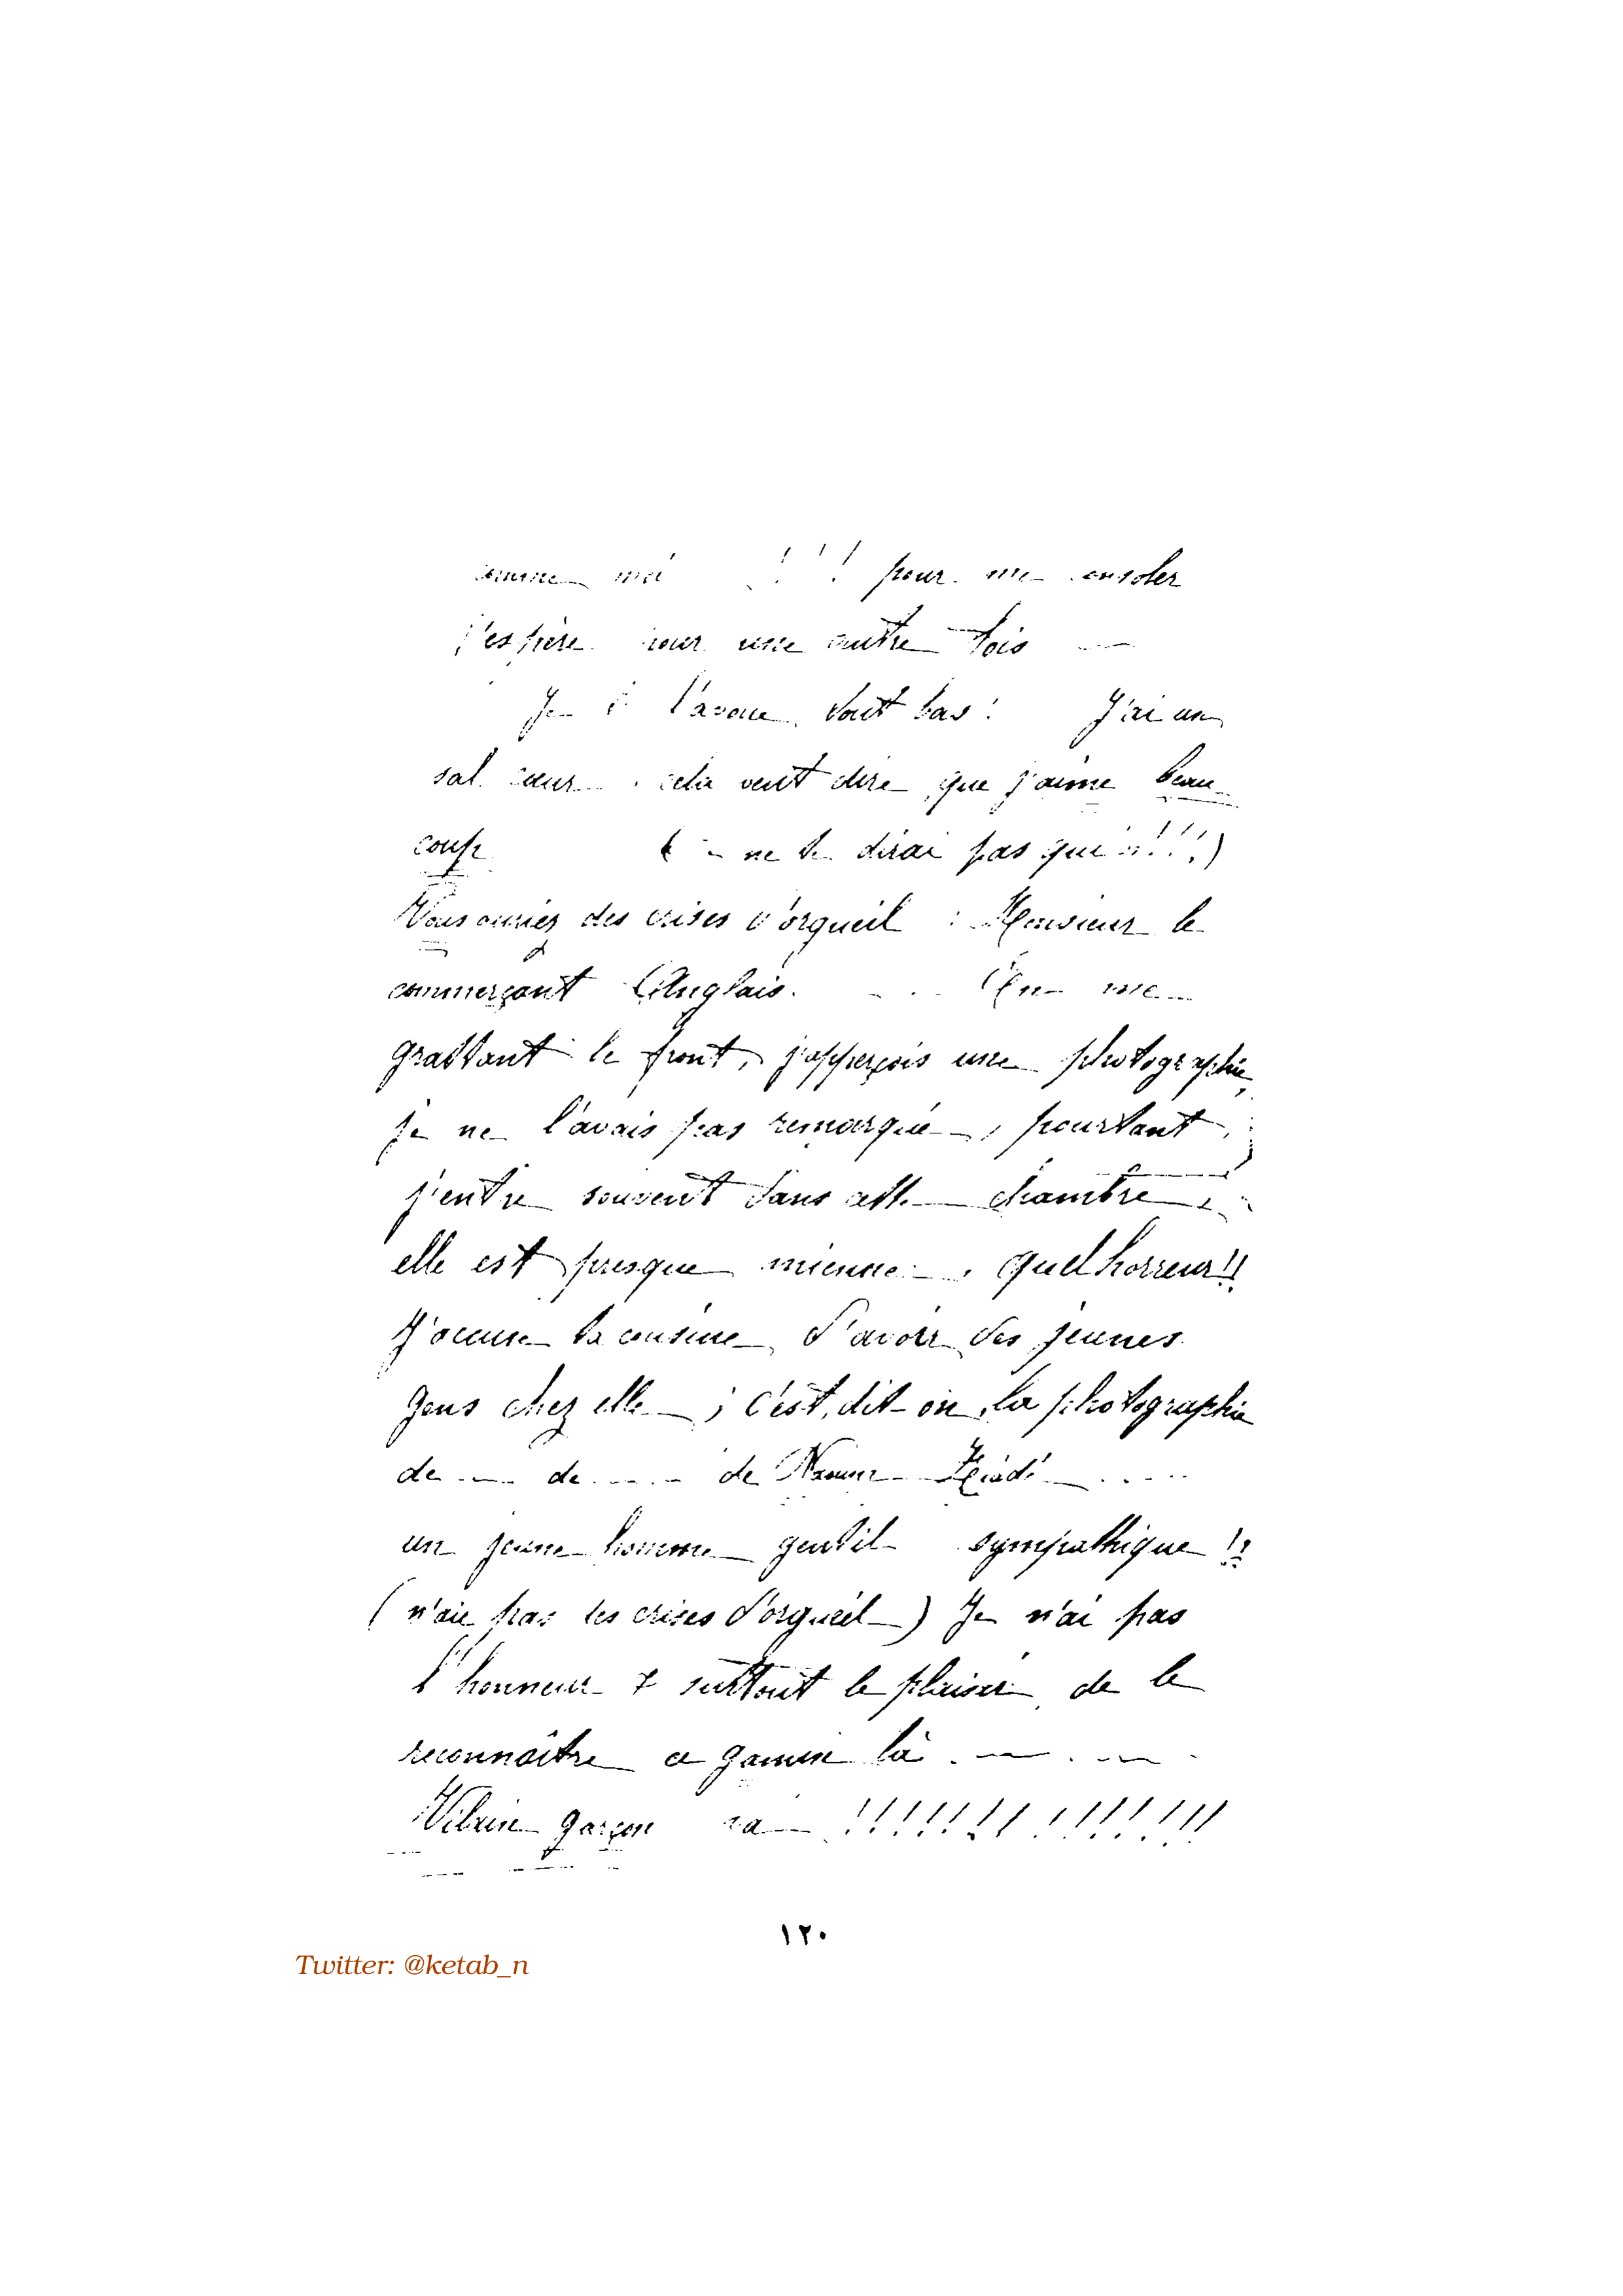 comme moi ! ! ! pour me consoler
j'espère pour une autre fois —
Je l'avoue tout bas : J'ai un
sal cœur . cela veut dire que j'aime beau-
coup ( ne te dirai pas qui !!!)
Vous auriez des crises d'orgueil : Monsieur le
commerçant Anglais. . . . En me
grattant le front, j'apperçois une photographie,
je ne l'avais pas remarquée, pourtant
j'entre souvent dans cette chambre,
elle est presque mienne . quel horreur!!
J'accuse ta cousine d'avoir des jeunes
gens chez elle ; c'est, dit-on, la photographie
de ---- de ---- de Naoum Ziadé .....
un jeune homme gentil sympathique !!
(n'aie pas les crises d'orgueil) Je n'ai pas
l'honneur & surtout le plaisir de le
reconnaître ce gamin là . — . —
Vilain garçon va !!!!!!!!!!!!!!
١٢٠
Twitter: @ketab_n